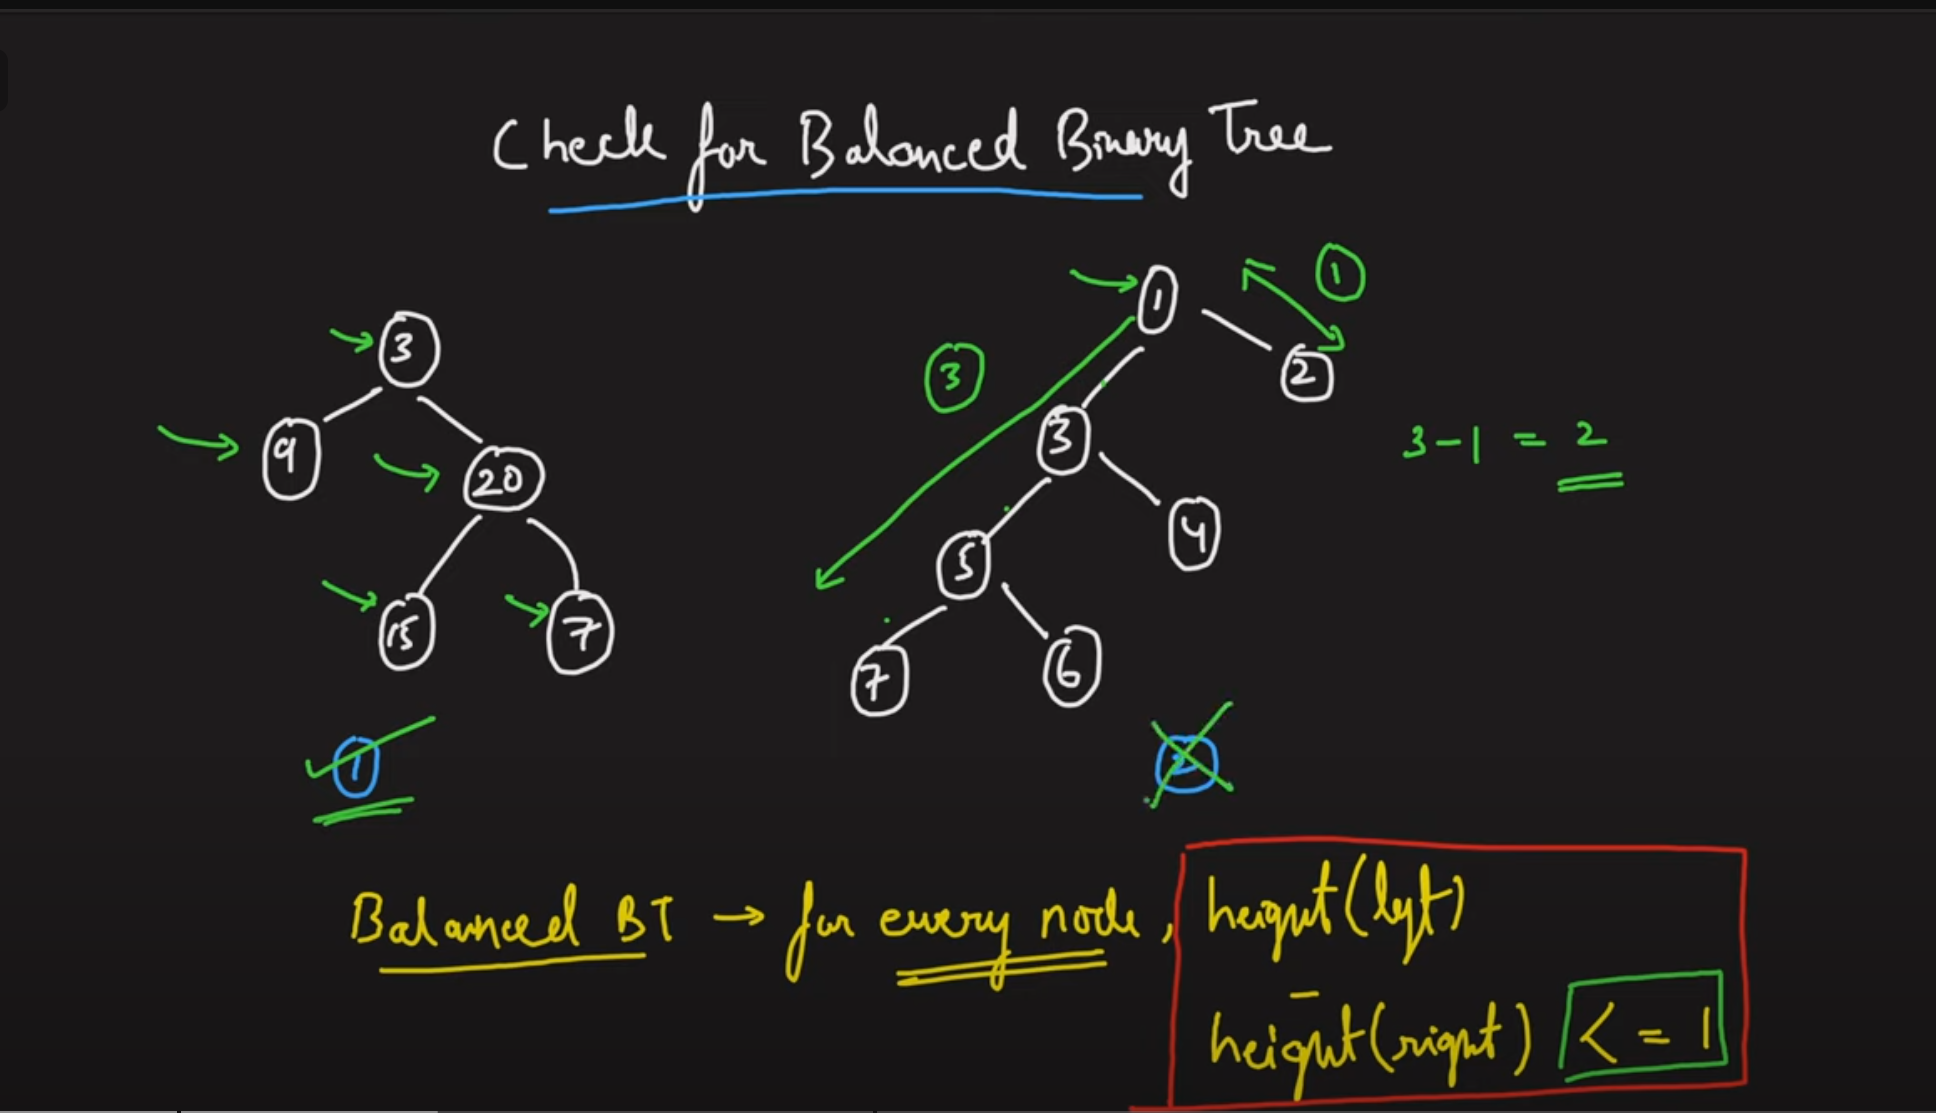 Check for Balanced Binary Tree
1
1
3
3
3
2
9
20
3
3-1 = 2
5
4
15
7
7
6
1
2
Balanced BT → for every node, height(left)
-
height(right) <= 1